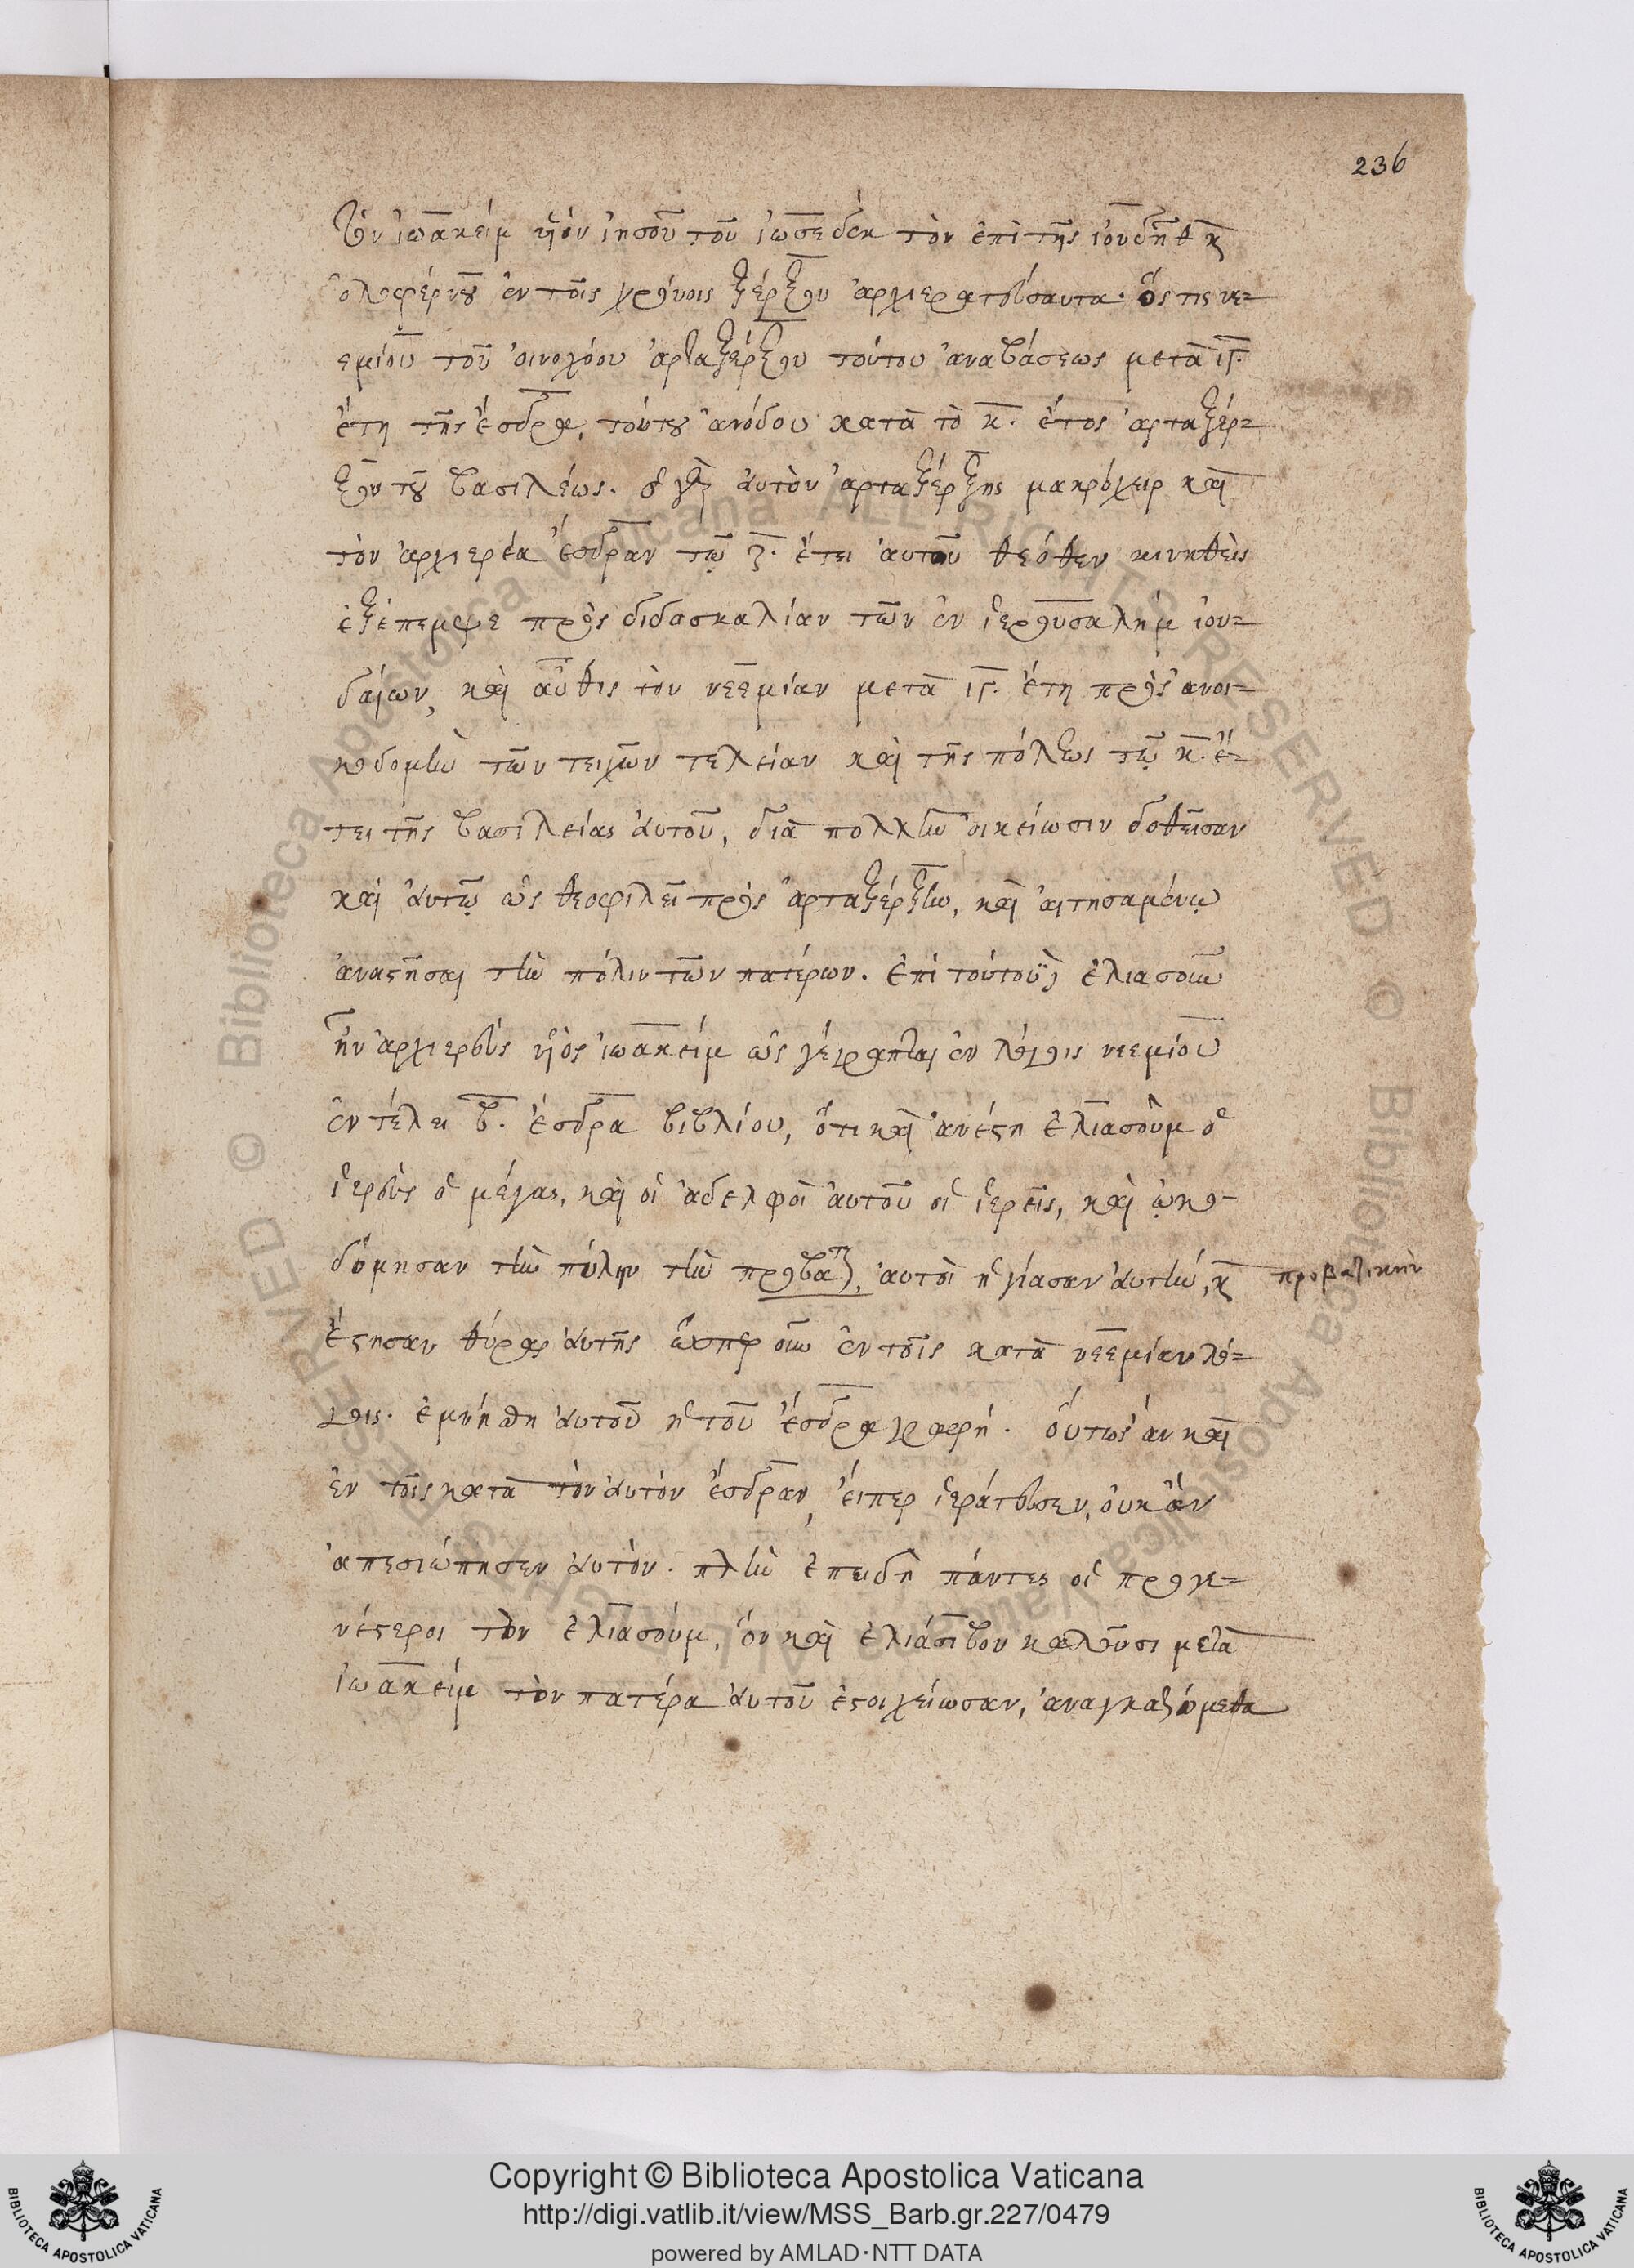 236
τὸν ἰωακεὶμ υἱὸν ἰησοῦ τοῦ ἰωσεδὲκ τὸν ἐπὶ τῆς ἰουδὴθ κ̀
ὀλοφέρνου ἐν τοῖς χρόνοις ξέρξου ἀρχιερατεύσαντα. ὅς τις νε=
εμίου τοῦ οἰνοχόου ἀρταξέρξου τούτου ἀναβάσεως μετὰ ιγ.
ἔτη τῆς ἔσδρα, τούτου ἀνόδου κατὰ τὸ κ. ἔτος ἀρταξέρ=
ξου τοῦ βασιλέως. ὁ γὰρ αὐτὸν ἀρταξέρξης μακρόχειρ καὶ
τὸν ἀρχιερέα ἔσδραν τῷ ζ. ἔτει αὐτοῦ θεόθεν κινηθεὶς
ἐξέπεμψε πρὸς διδασκαλίαν τῶν ἐν ἱερουσαλὴμ ἰου=
δαίων, καὶ αὖθις τὸν νεεμίαν μετὰ ιγ. ἔτη πρὸς ἀνοι=
κοδομὴν τῶν τειχῶν τελείαν καὶ τῆς πόλεως τῷ κ. ἔ=
τει τῆς βασιλείας αὐτοῦ, διὰ πολλὴν οἰκείωσιν δοθεῖσαν
καὶ αὐτῷ ὡς θεοφιλεῖ πρὸς ἀρταξέρξην, καὶ αἰτησαμένῳ
ἀναστῆσαι τὴν πόλιν τῶν πατέρων. ἐπὶ τούτου ἐλιασοὺμ
ἦν ἀρχιερεὺς υἱὸς ἰωακεὶμ ὡς γέγραπται ἐν λόγοις νεεμίου
ἐν τέλει β. ἔσδρα βιβλίου, ὅτι καὶ ἀνέστη ἐλιασοὺμ ὁ
ἱερεὺς ὁ μέγας, καὶ οἱ ἀδελφοὶ αὐτοῦ οἱ ἱερεῖς, καὶ ᾠκο-
δόμησαν τὴν πύλην τὴν προβα, αὐτοὶ ἡγίασαν αὐτὴν, κ̀ προβατικὴν
ἔστησαν θύρας αὐτῆς ὥσπερ οὖν ἐν τοῖς κατὰ νεεμίαν λό=
γοις. ἐμνήσθη αὐτοῦ ἡ τοῦ ἔσδρα γραφή. οὕτως ἂν καὶ
ἐν τοῖς κατὰ τὸν αὐτὸν ἔσδραν, εἴπερ ἱεράτευσεν, οὐκ ἂν
ἀπεσιώπησεν αὐτὸν. πλὴν ἐπειδὴ πάντες οἱ προγε=
νέστεροι τὸν ἐλιασοὺμ, ὃν καὶ ἐλιάσιβον καλοῦσι μετὰ
ἰωακεὶμ τὸν πατέρα αὐτοῦ ἐστοιχείωσαν, ἀναγκαζόμεθα
Copyright © Biblioteca Apostolica Vaticana
http://digi.vatlib.it/view/MSS_Barb.gr.227/0479
powered by AMLAD·NTT DATA